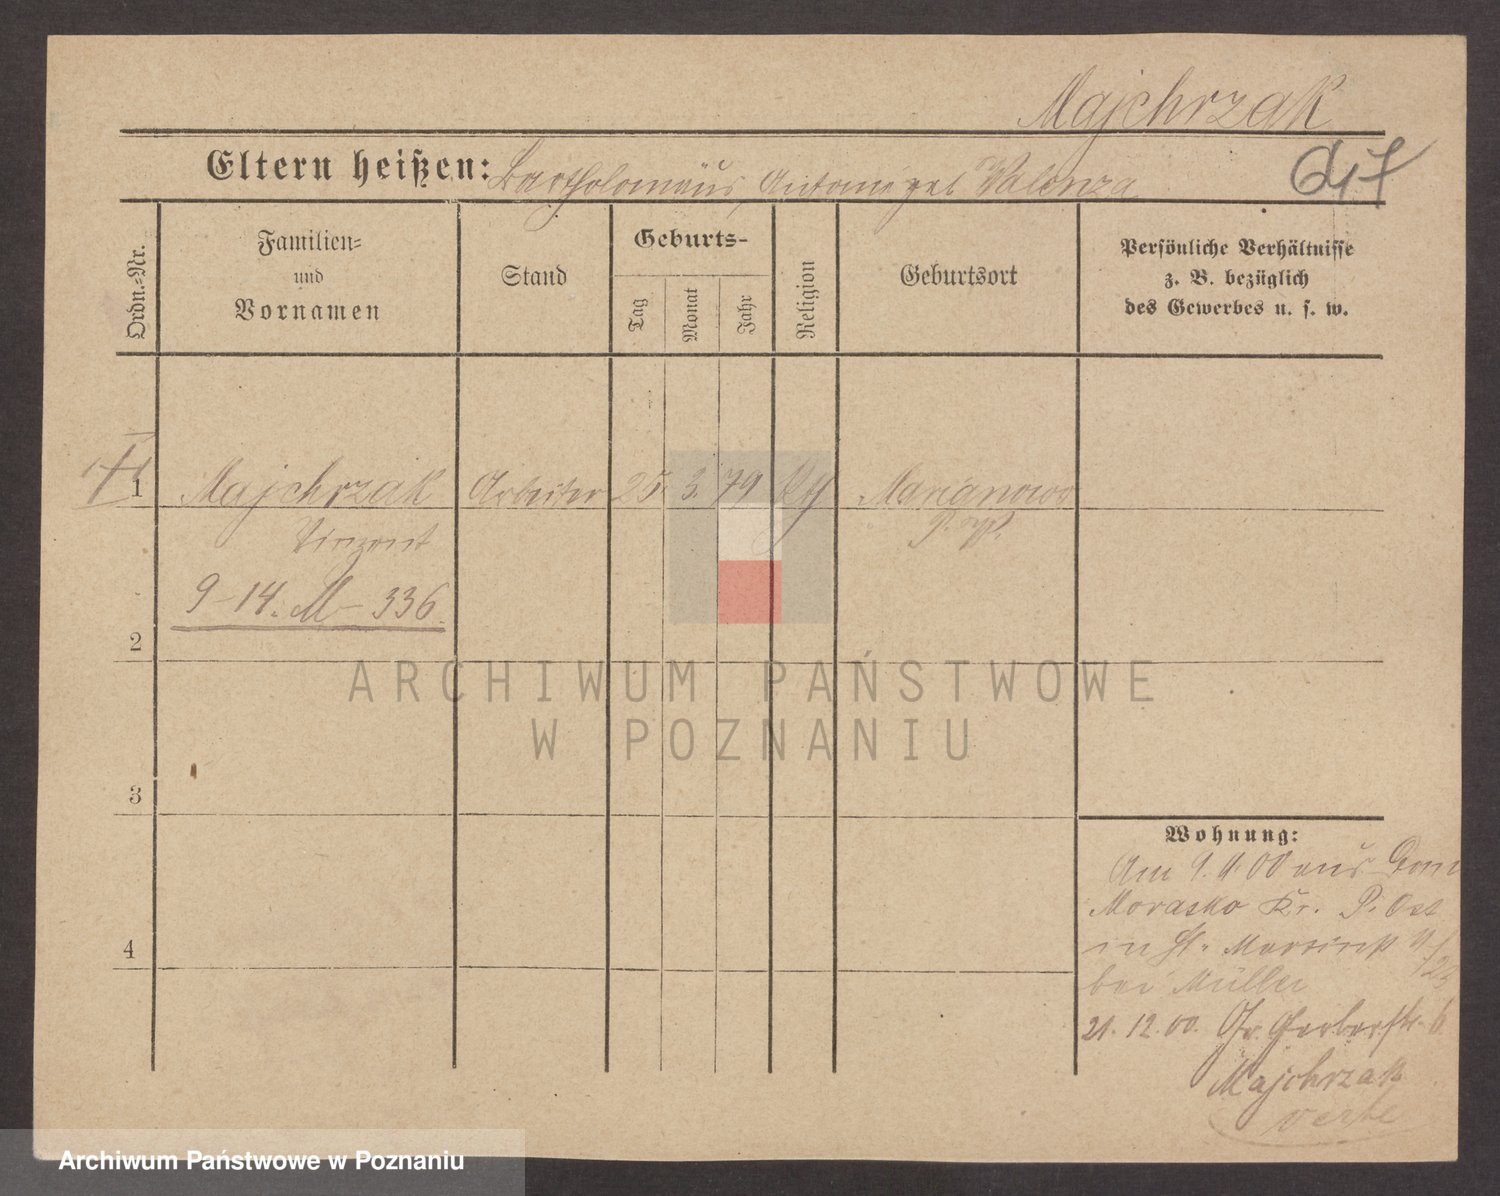 Majchrzak
Eltern heißen: Bartholomäus, Antonie geb Walenza
Ordn.-Nr.
Familien-
und
Vornamen
Stand
Geburts-
Tag
Monat
Jahr
Religion
Geburtsort
Persönliche Verhältnisse
z. B. bezüglich
des Gewerbes u. s. w.
1 Majchrzak Arbeiter 25. 3. 79 Marianowo
Vinzent
9-14. M-336.
2
3
4
Wohnung:
Am 9. 4. 00 aus Dom
Morasko Kr. P. Ost
in St. Martinstr
bei Müller
21. 12. 00. Gr. Gerberstr. 6.
Majchrzak
verte
ARCHIWUM PAŃSTWOWE
W POZNANIU
Archiwum Państwowe w Poznaniu